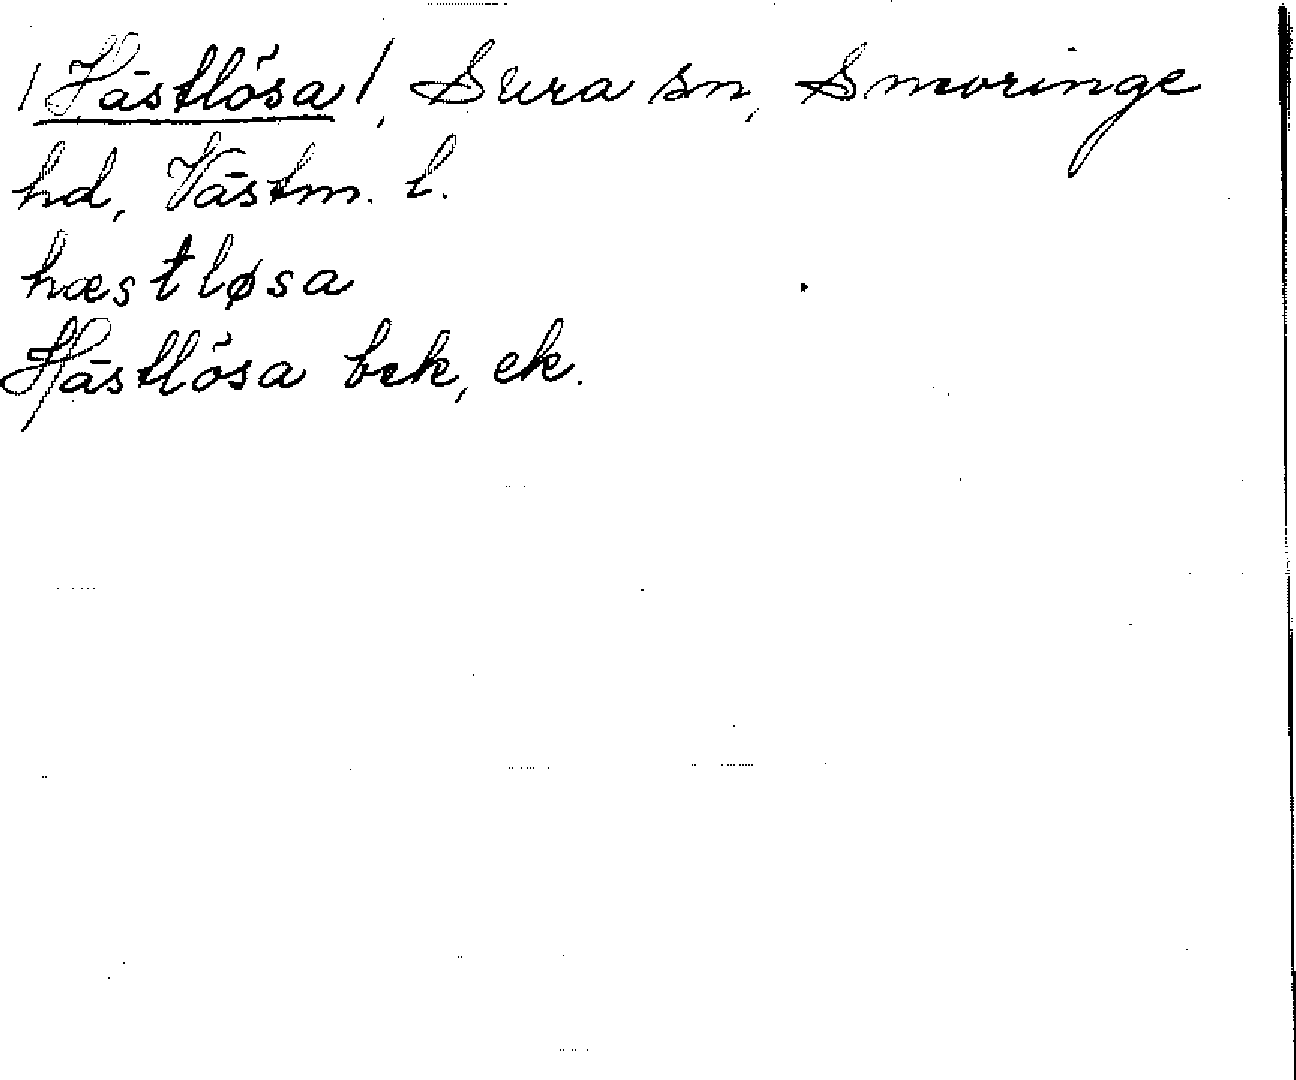 /Hästlösa/, Sura sn, Snevringe
hd, Västm. l.
hæstløsa
Hästlösa bek, ek.